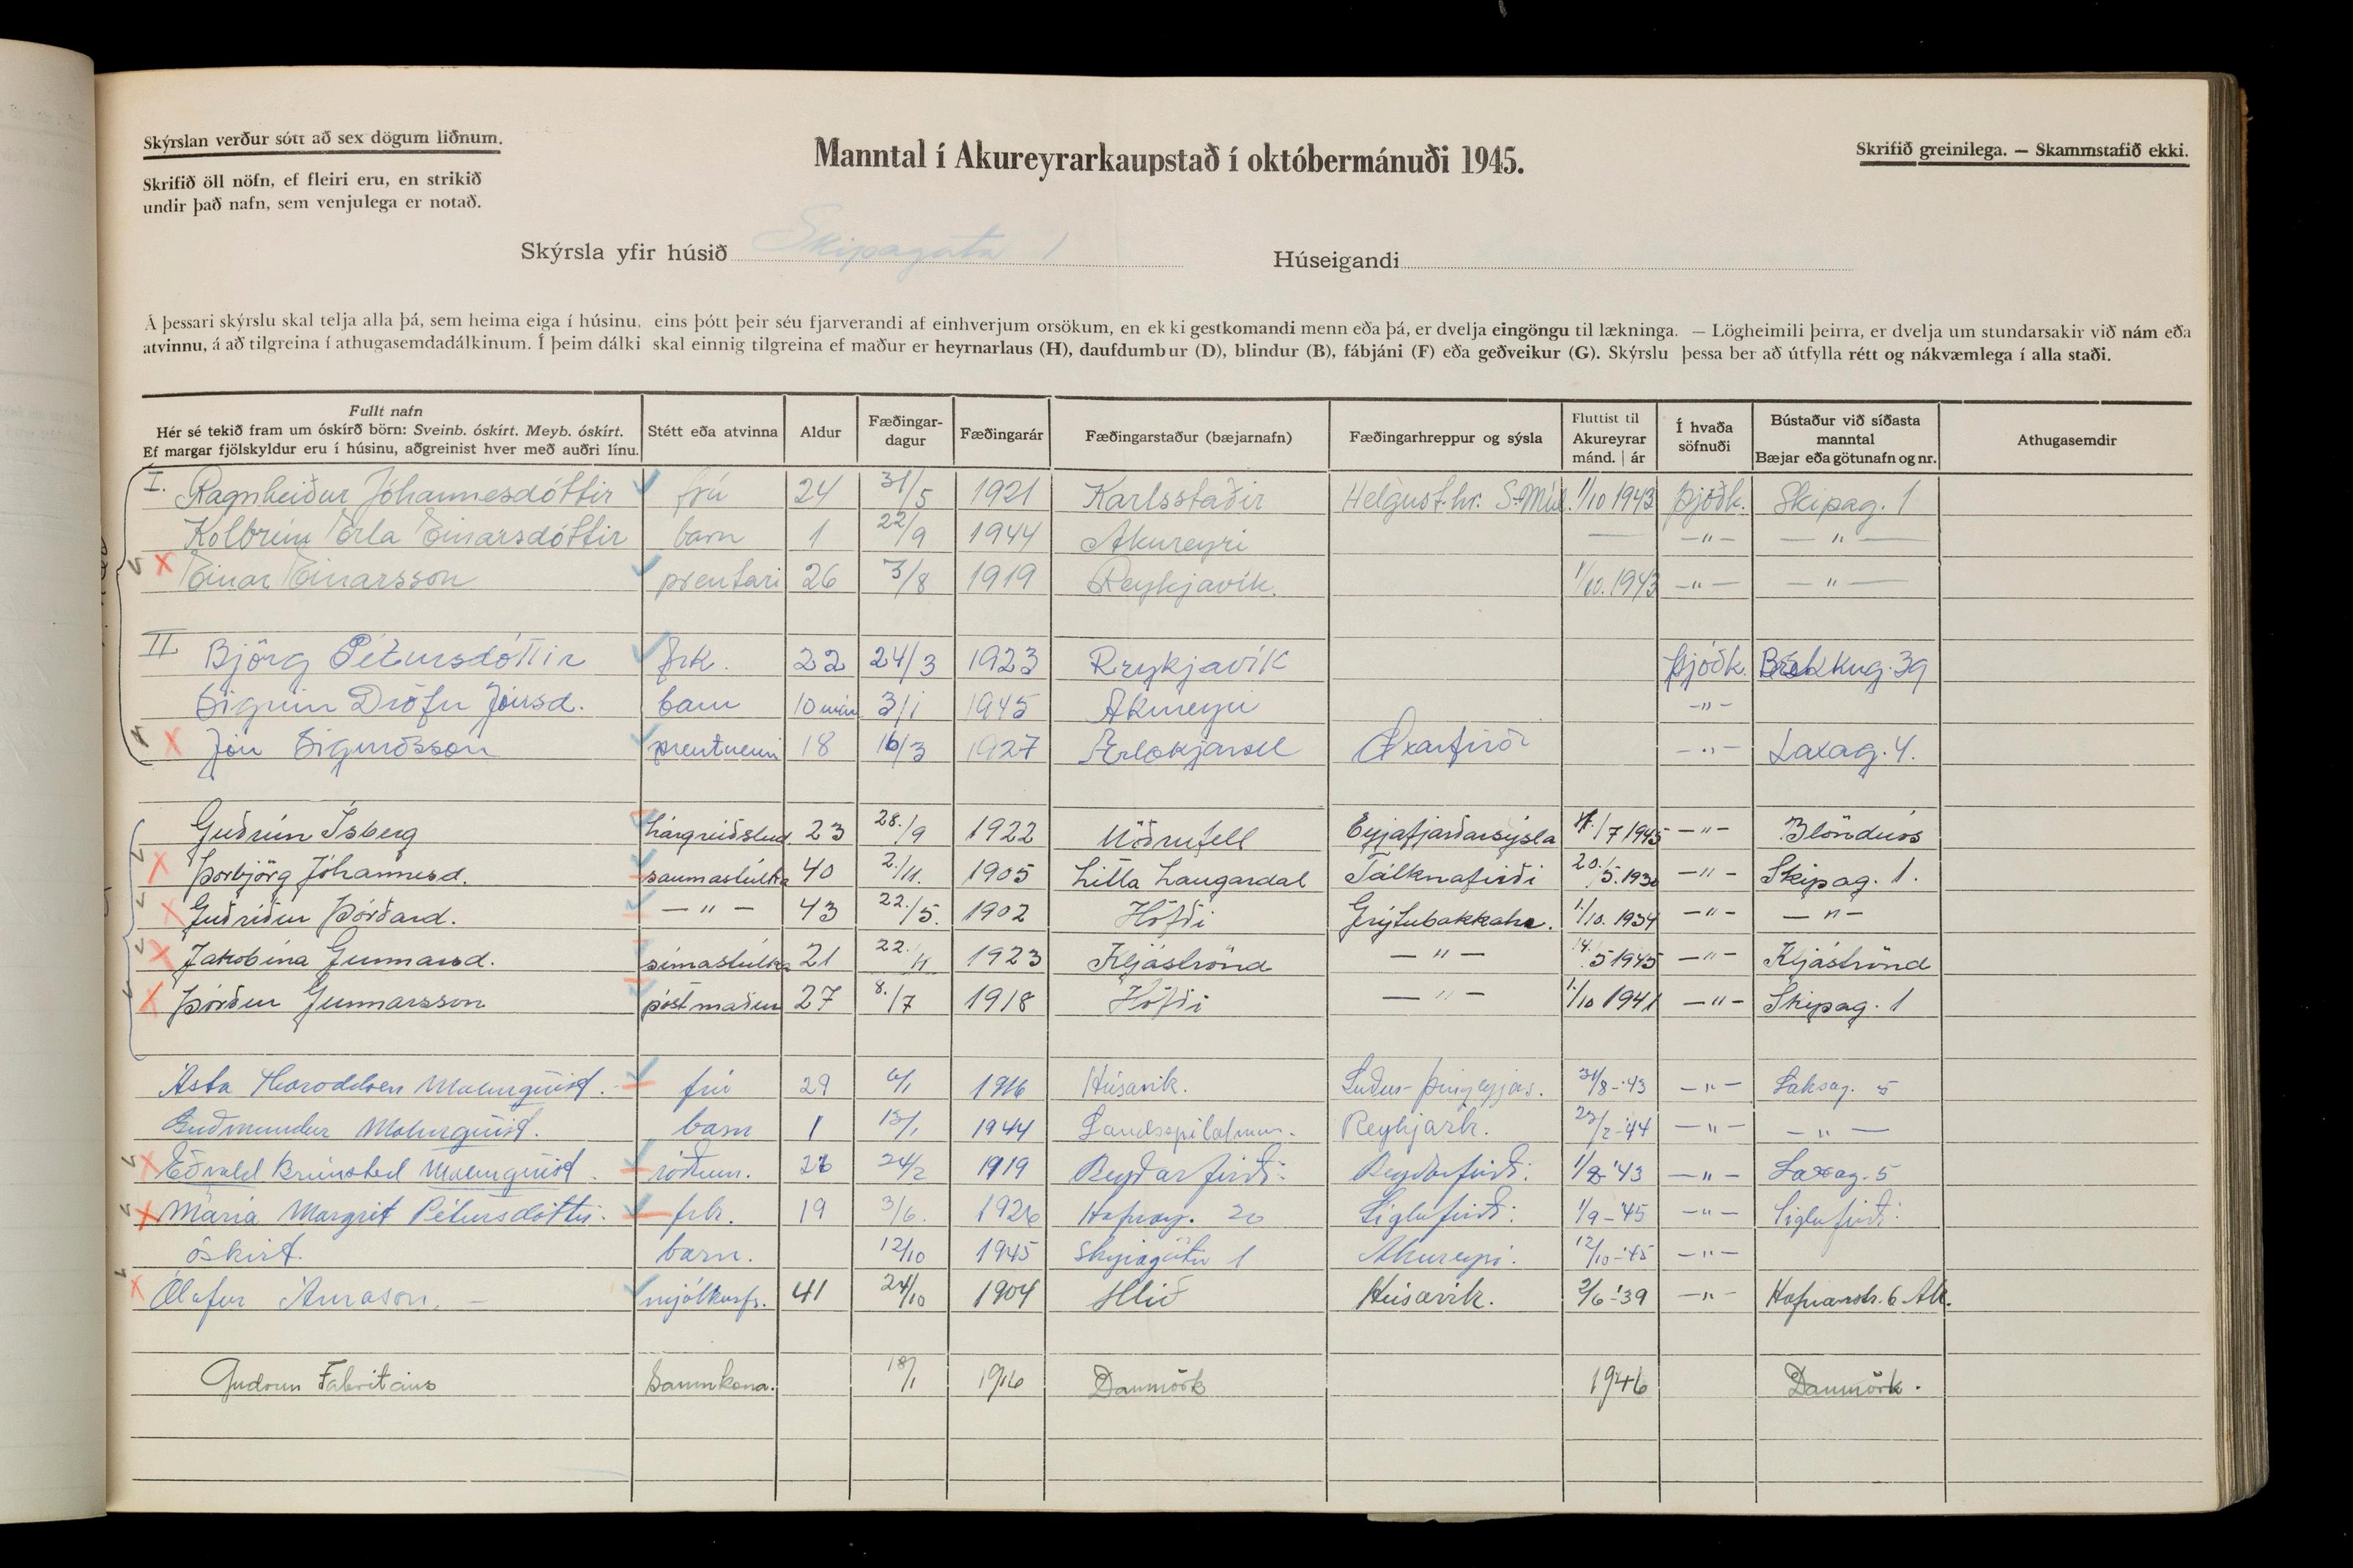 Skýrslan verður sótt að sex dögum liðnum.
Skrifið öll nöfn, ef fleiri eru, en strikið
undir það nafn, sem venjulega er notað.
Manntal í Akureyrarkaupstað í októbermánuði 1945.
Skrifið greinilega. — Skammstafið ekki.
Skýrsla yfir húsið Skipagata 1 Húseigandi
Á þessari skýrslu skal telja alla þá, sem heima eiga í húsinu, eins þótt þeir séu fjarverandi af einhverjum orsökum, en ekki gestkomandi menn eða þá, er dvelja eingöngu til lækninga. — Lögheimili þeirra, er dvelja um stundarsakir við nám eða
atvinnu, á að tilgreina í athugasemdadálkinum. Í þeim dálki skal einnig tilgreina ef maður er heyrnarlaus (H), daufdumbur (D), blindur (B), fábjáni (F) eða geðveikur (G). Skýrslu þessa ber að útfylla rétt og nákvæmlega í alla staði.
Fullt nafn
Hér sé tekið fram um óskírð börn: Sveinb. óskírt. Meyb. óskírt.
Ef margar fjölskyldur eru í húsinu, aðgreinist hver með auðri línu.
Stétt eða atvinna
Aldur
Fæðingar-
dagur
Fæðingarár
Fæðingarstaður (bæjarnafn)
Fæðingarhreppur og sýsla
Fluttist til
Akureyrar
mánd. | ár
Í hvaða
söfnuði
Bústaður við síðasta
manntal
Bæjar eða götunafn og nr.
Athugasemdir
I. Ragnheiður Jóhannesdóttir frú 24 31/5 1921 Karlsstaðir Helgust.hr. S-Múl. 1/10 1943 Þjóðk. Skipag. 1
Kolbrún Erla Einarsdóttir barn 1 22/9 1944 Akureyri — -"- — " —
Einar Einarsson prentari 26 3/8 1919 Reykjavík. 1/10. 1943 -"- — " —
II Björg Pétursdóttir frk. 22 24/3 1923 Reykjavík Þjóðk. Brekkug. 39
Sigrún Dröfn Jónsd. barn 10 mán 3/1 1945 Akureyri -"-
Jón Sigurðsson prentnemi 18 16/3 1927 Ærlækjarsel Öxarfirði -"- Laxag. 4.
Guðrún Ísberg hárgreiðslud. 23 28./9 1922 Möðrufell Eyjafjarðarsýsla /7 1945 -"- Blönduós
Þorbjörg Jóhannesd. saumastúlka 40 2./11. 1905 Litla Laugardal Tálknafirði 20./5. 1930 -"- Skipag. 1.
Guðríður Þórðard. — " — 43 22./5. 1902 Höfði Grýtubakkahr. 1./10. 1934 -"- — " —
Jakobína Gunnarsd. símastúlka 21 22./11 1923 Kljáströnd — " — 14./5 1945 -"- Kljáströnd
Þórður Gunnarsson póstmaður 27 8./7 1918 Höfði — " — 1./10 1941 -"- Skipag. 1
Ásta Malmquist. frú 29 6/1 1916 Húsavík. Suður-Þingeyjas. 31/8-'43 -"- Laksag. 5
Guðmundur Malmquist. barn 1 13/1 1944 Landsspítalanum. Reykjavík. 23/2-'44 -"- — " —
Eðvald Brünsted Malmquist. ráðun. 26 24/2 1919 Reyðarfirði. Reyðarfirði. 1/8-'43 -"- Laxag. 5
María Margrét Pétursdóttir. frk. 19 3/6. 1926 Hafnarg. 20 Siglufirði. 1/9-'45 -"- Siglufirði.
óskírt. barn. 12/10 1945 Skipagötu 1 Akureyri. 12/10-'45 -"-
Ólafur Árnason. mjólkurfr. 41 24/10 1904 Hlíð Húsavík. 2/6-'39 -"- Hafnarstr. 6 Ak.
Gudrun Fabritius Saumakona. 18/1 1916 Danmörk 1946 Danmörk.